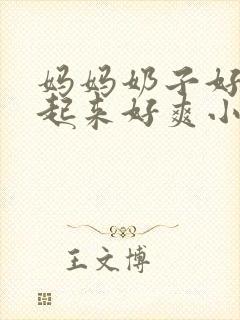 妈妈奶子好
起来好爽小
王文博